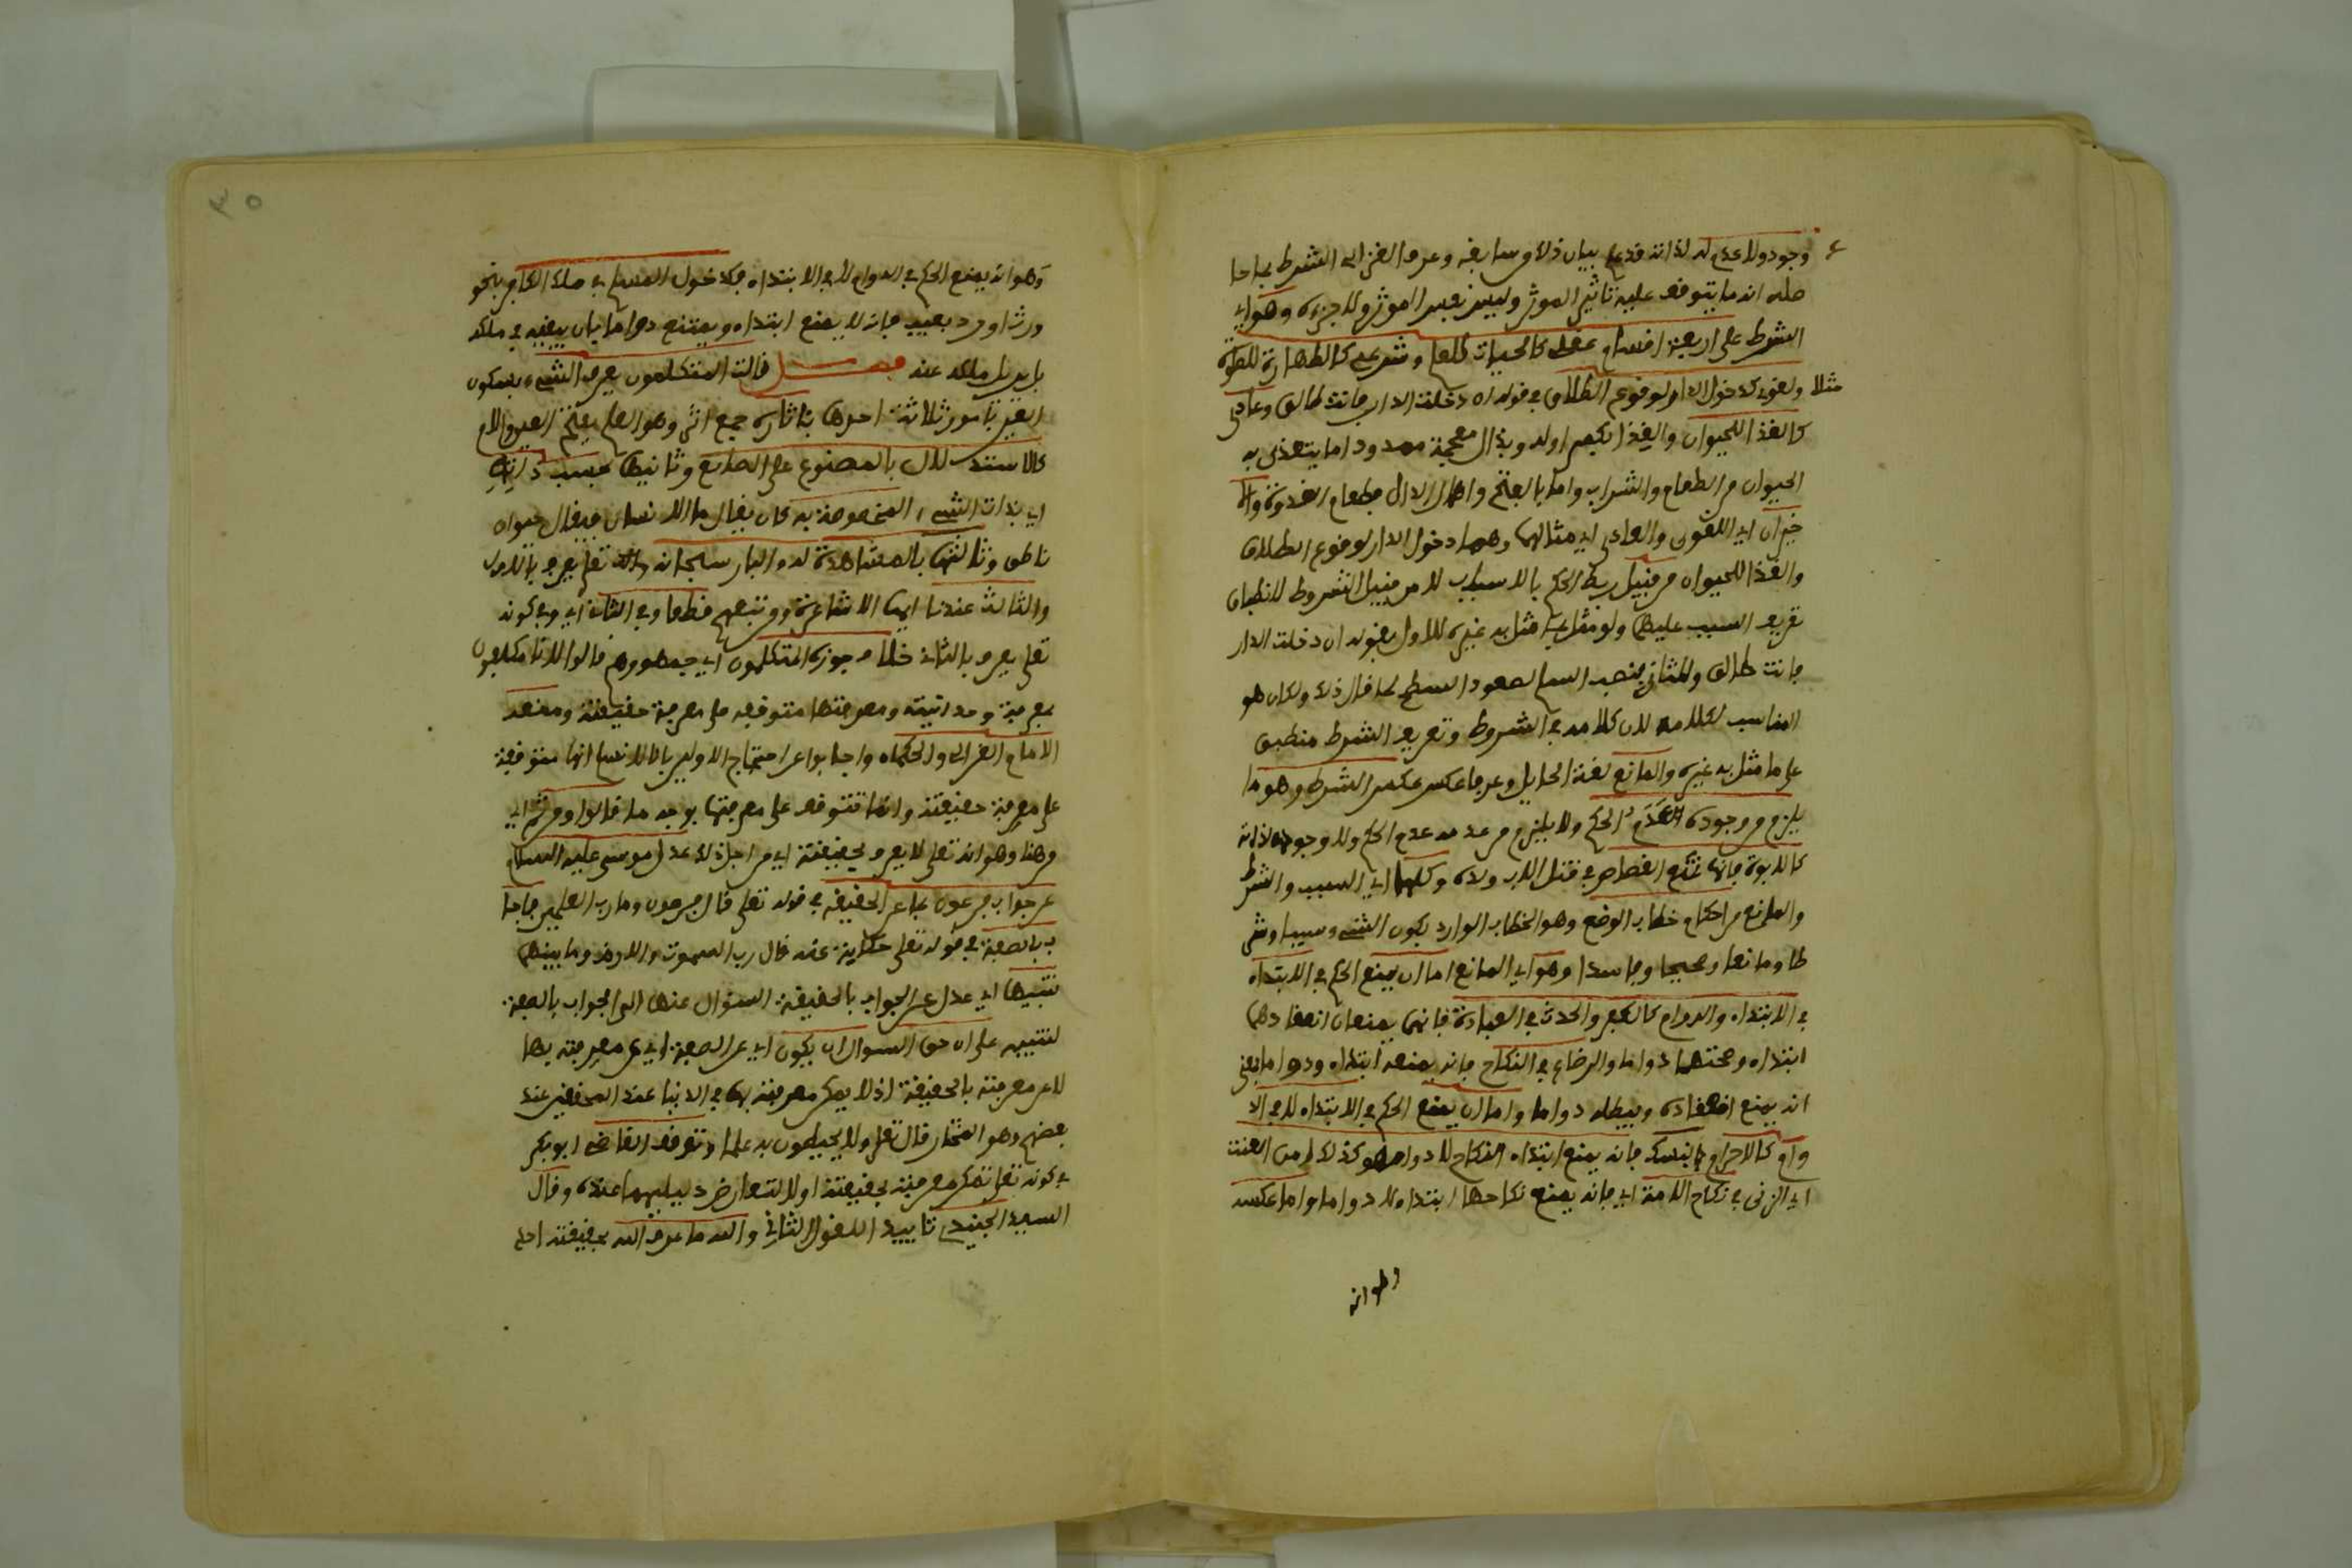 وجود ولا عدم له لذاته قد علم بيان ذلك من سابقه وعرف الغزالي الشرط بما حا
صله انه ما يتوقف عليه تاثير الموثر وليس بعين الموثر ولا جزءه وهو اي
الشرط على اربعة اقسام عقلي كالحيات للعلم وشرعي كالطهارة للصلوة
مثلا ولغوي كدخول الدار لوقوع الطلاق في قوله ان دخلت الدار فانت طالق وعادي
كالغذا للحيوان والغذا بكسر اوله وبذال معجمة ممدود اما يتغذى به
الحيوان من الطعام والشراب واما بالفتح واهمال الدال فطعام الغدوة والا
خيران اي اللغوي والعادي اي مثالهما وهما دخول الدار لوقوع الطلاق
والغذا للحيوان من قبيل ربط الحكم بالاسباب لا من قبيل الشروط لانطباق
تعريف السبب عليهما ولو مثل بما مثل به غيره للاول بقوله ان دخلت الدار
فانت طالق وللثاني بنصب السلم لصعود السطح كما قال ذلك ولكان هو
المناسب لكلامه لان كلامه في الشروط وتعريف الشرط منطبق
على ما مثل به غيره والمانع لغة الحايل وعرفا عكس الشرط وهو ما
يلزم من وجوده عدم الحكم ولا يلزم من عدمه عدم الحكم ولا وجوده لذاته
كالابوة فانها تمنع القصاص في قتل الاب ولده وكلها اي السبب والشرط
والمانع من احكام خطاب الوضع وهو الخطاب الوارد بكون الشيء سببا وشر
طا ومانعا وصحيحا وفاسدا وهو اي المانع اما ان يمنع الحكم في الابتداء
في الابتداء والدوام كالكفر والحدث في العبادة فانهما يمنعان انعقادها
ابتداء وصحتها دواما والرضاع في النكاح فانه يمنعه ابتداء ودواما بمعنى
انه يمنع انعقاده ويبطله دواما واما ان يمنع الحكم في الابتداء لا في الد
وام كالاحرام بالنسك فانه يمنع ابتداء النكاح لا دوامه وكذلك امن العنت
اي الزنى في نكاح الامة اي فانه يمنع نكاحها ابتداء لا دواما واما عكسه
وهو انه
٣٥
وهو انه يمنع الحكم في الدوام لا في الابتداء كدخول المسلم في ملك الكافر بنحو
ورث او رد بعيب فانه لا يمنع ابتداء ويمتنع دواما بان يبقيه في ملكه
بل يزيل ملكه عنه فصل قالت المتكلمون يعرف الشيء بسكون
الغير بامور ثلاثة احدها باثاره جمع اثر وهو العلم بفتح العين واللام
كالاستدلال بالمصنوع على الصانع وثانيها بحسب ذاته
اي بذات الشيء المخصوصة به كان يقال ما الانسان فيقال حيوان
ناطق وثالثها بالمشاهدة له والبار سبحانه تعلى يعرف بالاول
والثالث عندنا ايها الاشاعرة ومن تبعهم قطعا وفي الثاني اي وفي كونه
تعلى يعرف بالثاني خلاف جوزه المتكلمون اي جمهورهم قالوا لانا مكلفون
بمعرفة وحدانيته ومعرفتها متوقفة على معرفة حقيقته ومنعه
الامام الغزالي والحكماء واجابوا عن احتجاج الاولين بانا لا نسلم انها متوقفة
على معرفة حقيقته وانما تتوقف على معرفتها بوجه ما قالوا ومن ثم اي
من هنا وهو انه تعلى لا يعرف بحقيقته اي من اجل ذلك عدل موسى عليه السلام
عن جواب فرعون بما عن الحقيقة في قوله تعلى قال فرعون وما رب العلمين فاجا
ب بالصفة في قوله تعلى حكاية عنه قال رب السموت والارض وما بينهما
تنبيها اي عدل عن الجواب بالحقيقة السؤال عنها الى الجواب بالصفة
لتنبيه على ان حق السوال ان يكون اي عن الصفة اي عن معرفته بها
لا عن معرفته بالحقيقة اذ لا يمكن معرفته بها في الدنيا عند المحققين عند
بعضهم وهو المختار قال تعلى ولا يحيطون به علما وتوقف القاضي ابو بكر
في كونه تعلى تمكن معرفته بحقيقته اولا لتعارض دليليهما عنده وقال
السيد الجنيد تاييدا للقول الثاني والله ما عرف الله بحقيقته احد